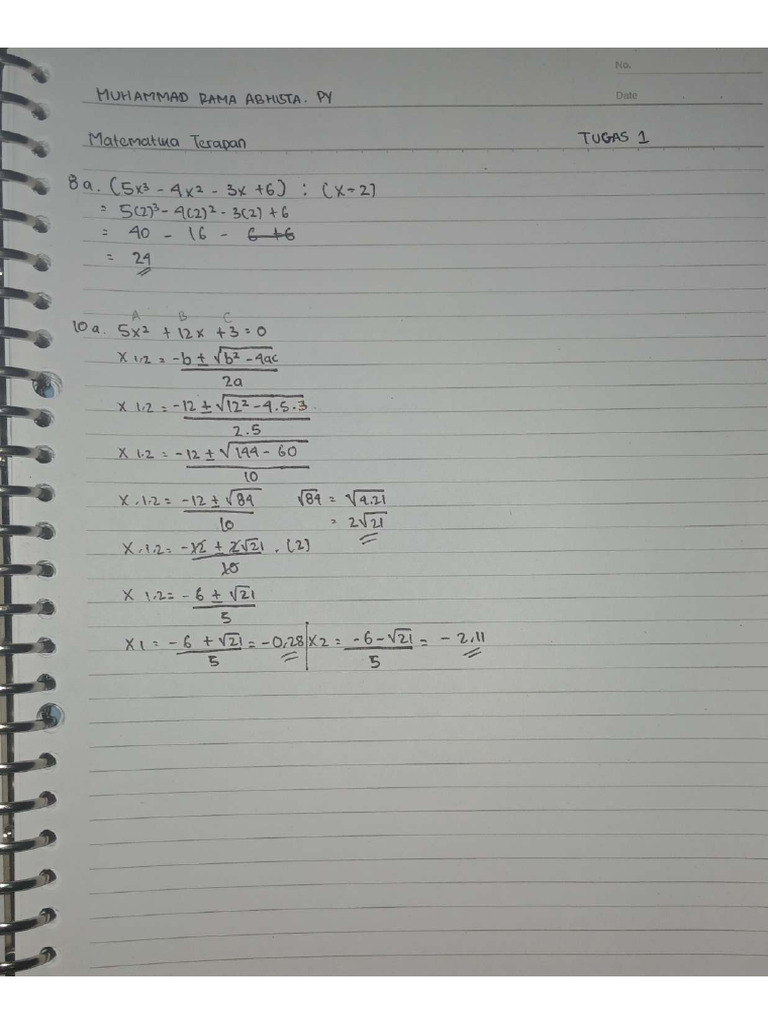 No.
MUHAMMAD RAMA ABHISTA. PY
Date
Matematika Terapan TUGAS 1
8a. (5x³ - 4x² - 3x + 6) : (x-2)
= 5(2)³ - 4(2)² - 3(2) + 6
= 40 - 16 - 6 + 6
= 24
A B C
10a. 5x² + 12x + 3 = 0
x 1.2 = -b ± √b² - 4ac
2a
x 1.2 = -12 ± √12² - 4.5.3
2.5
x 1.2 = -12 ± √144 - 60
10
x.1.2 = -12 ± √84 √84 = √4.21
10 = 2√21
x.1.2 = -12 ± 2√21 . (2)
10
x 1.2 = -6 ± √21
5
x1 = -6 + √21 = -0,28 | x2 = -6 - √21 = -2,11
5 5